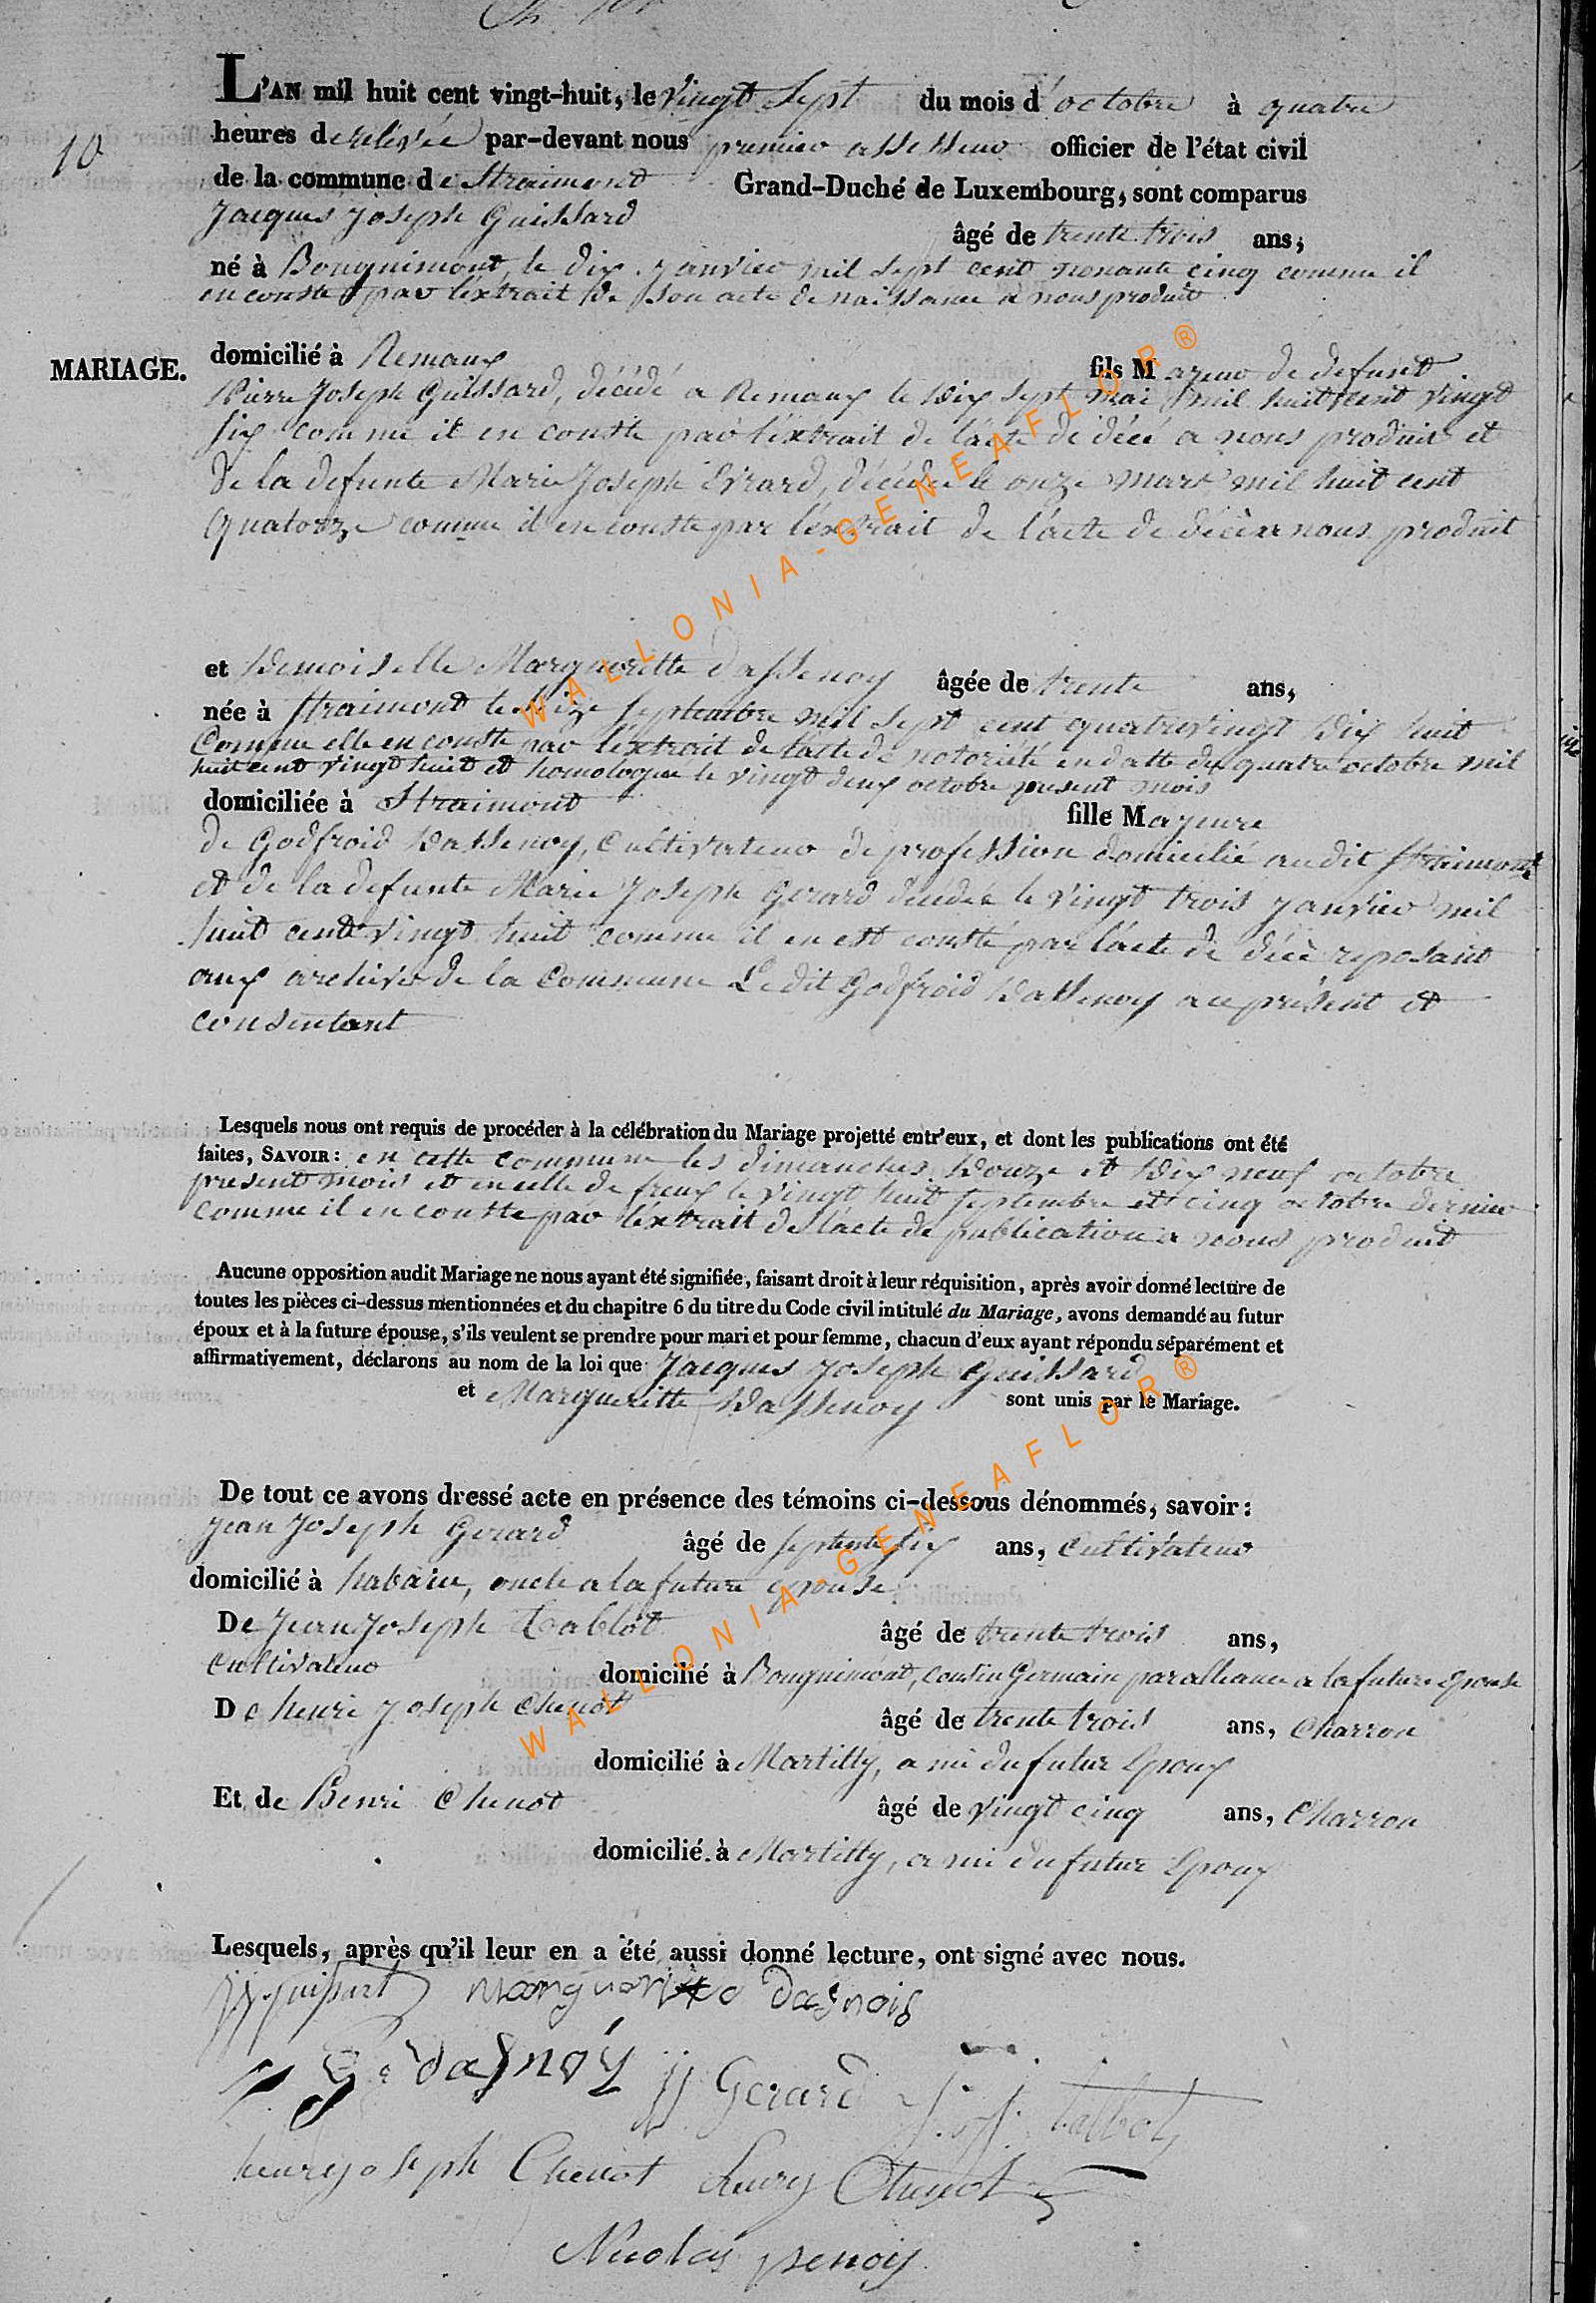 10
L'AN mil huit cent vingt-huit, le vingt sept du mois d'octobre à quatre
heures de relévée par-devant nous premier assesseur officier de l'état civil
de la commune de Straimont Grand-Duché de Luxembourg, sont comparus
Jacques Joseph Guissard
âgé de trente trois ans;
né à Bouquimont, le dix janvier mil sept cent nonante cinq comme il
en conste par l'extrait de son acte de naissance a nous produit
MARIAGE.
domicilié à Remaux fils Majeur de defunt
Pierre Joseph Guissard, décédé a Remaux le dix sept mai mil huit cent vingt
six comme il en conste par l'extrait de l'acte de décé a nous produit et
de la defunte Marie Joseph Evrard, décédée le onze mars mil huit cent
quatorze comme il en conste par l'extrait de l'acte de décè a nous produit
et demoiselle Margueritte dassenoy âgée de trente ans,
née à Straimont le seize septembre mil sept cent quatrevingt dix huit
Comme elle en conste par l'extrait de l'acte de notoriété en datte du quatre octobre mil
huit cent vingt huit et homologué le vingt deux octobre present mois
domiciliée à Straimont fille Majeure
de Godfroid Dassenoy, Cultivateur de profession domicilié au dit Straimont
et de la defunte Marie Joseph Gerard décédée le vingt trois janvier mil
huit cent vingt huit comme il en est consté par l'acte de décè reposant
aux archives de la Commune Le dit Godfroid Dassenoy a ce présent et
consentant
Lesquels nous ont requis de procéder à la célébration du Mariage projetté entr'eux, et dont les publications ont été
faites, SAVOIR: en cette commune les dimanches douze et dix neuf octobre
present mois et en celle de freux le vingt huit septembre et cinq octobre dernier
comme il en conste par l'extrait de l'acte de publication a nous produit
Aucune opposition audit Mariage ne nous ayant été signifiée, faisant droit à leur réquisition, après avoir donné lecture de
toutes les pièces ci-dessus mentionnées et du chapitre 6 du titre du Code civil intitulé du Mariage, avons demandé au futur
époux et à la future épouse, s'ils veulent se prendre pour mari et pour femme, chacun d'eux ayant répondu séparément et
affirmativement, déclarons au nom de la loi que Jacques Joseph Guissard
et Margueritte Dassenoy sont unis par le Mariage.
De tout ce avons dressé acte en présence des témoins ci-dessous dénommés, savoir:
Jean Joseph Gerard âgé de septente six ans, Cultivateur
domicilié à habaru, oncle a la future epouse
De Jean Joseph Tablot âgé de trente trois ans,
Cultivateur domicilié à Bouquimont, cousin Germain par alliance a la future epouse
De henri Joseph Chenot âgé de trente trois ans, Charron
domicilié à Martilly, ami du futur Epoux
Et de Henri Chenot âgé de vingt cinq ans, Charron
domicilié à Martilly, ami du futur Epoux
Lesquels, après qu'il leur en a été aussi donné lecture, ont signé avec nous.
JJ guissart marguerite dasnois
G: dasnoÿ JJ Gerard J. J. talbot
henry joseph Chenot henry Chenot
Nicolas penoy
WALLONIA-GENEAFLOR®
WALLONIA-GENEAFLOR®